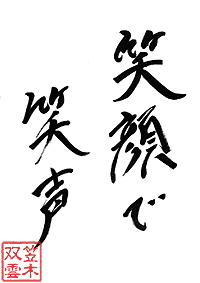 笑顔で
笑声
笠木
双雲